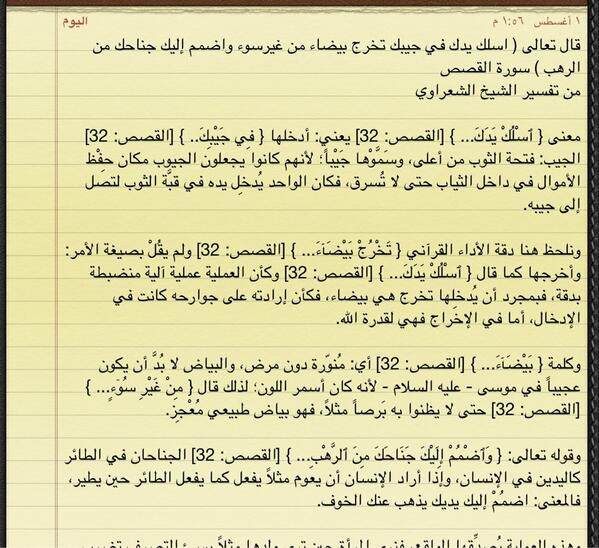 اليوم ١ أغسطس ١:٥٦ م
قال تعالى ( اسلك يدك في جيبك تخرج بيضاء من غيرسوء واضمم إليك جناحك من
الرهب ) سورة القصص
من تفسير الشيخ الشعراوي
معنى { ٱسْلُكْ يَدَكَ... } [القصص: 32] يعني: أدخلها { فِي جَيْبِكَ.. } [القصص: 32]
الجيب: فتحة الثوب من أعلى، وسَمَّوْها جَيْباً؛ لأنهم كانوا يجعلون الجيوب مكان حِفْظ
الأموال في داخل الثياب حتى لا تُسرق، فكان الواحد يُدخِل يده في قبَّة الثوب لتصل
إلى جيبه.
ونلحظ هنا دقة الأداء القرآني { تَخْرُجْ بَيْضَآءَ... } [القصص: 32] ولم يقُلْ بصيغة الأمر:
وأخرجها كما قال { ٱسْلُكْ يَدَكَ... } [القصص: 32] وكأن العملية عملية آلية منضبطة
بدقة، فبمجرد أن يُدخِلها تخرج هي بيضاء، فكأن إرادته على جوارحه كانت في
الإدخال، أما في الإخراج فهي لقدرة الله.
وكلمة { بَيْضَآءَ... } [القصص: 32] أي: مُنوّرة دون مرض، والبياض لا بُدَّ أن يكون
عجيباً في موسى - عليه السلام - لأنه كان أسمر اللون؛ لذلك قال { مِنْ غَيْرِ سُوۤءٍ... }
[القصص: 32] حتى لا يظنوا به بَرصاً مثلاً، فهو بياض طبيعي مُعْجِز.
وقوله تعالى: { وَٱضْمُمْ إِلَيْكَ جَنَاحَكَ مِنَ ٱلرَّهْبِ... } [القصص: 32] الجناحان في الطائر
كاليدين في الإنسان، وإذا أراد الإنسان أن يعوم مثلاً يفعل كما يفعل الطائر حين يطير،
فالمعنى: اضمُمْ إليك يديك يذهب عنك الخوف.